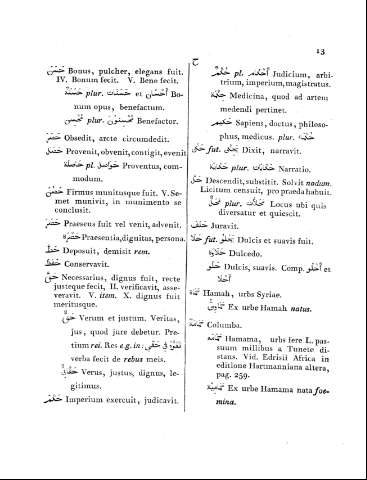 ح
13
حَسُنَ Bonus, pulcher, elegans fuit.
IV. Bonum fecit. V. Bene fecit.
حَسَنَةٌ plur. حَسَنَات et أَحْسَان Bo-
num opus, benefactum.
مُحْسِن plur. مُحْسِنُونَ Benefactor.
حَصَرَ Obsedit, arcte circumdedit.
حَصَلَ Provenit, obvenit, contigit, evenit
حَاصِلَة pl. حَوَاصِل Proventus, com-
modum.
حَصُنَ Firmus munitusque fuit. V. Se-
met munivit, in munimento se
conclusit.
حَضَرَ Praesens fuit vel venit, advenit.
حَضْرَة Praesentia, dignitas, persona.
حَطَّ Deposuit, demisit rem.
حَفِظَ Conservavit.
حَقَّ Necessarius, dignus fuit, recte
justeque fecit, II. verificavit, asse-
veravit. V. item. X. dignus fuit
meritusque.
حَقٌّ Verum et justum. Veritas,
jus, quod jure debetur. Pre-
tium rei. Res e.g. in:
verba fecit de rebus meis.
Verus, justus, dignus, le-
gitimus.
حَكَمَ Imperium exercuit, judicavit.
حُكْم pl. أَحْكَام Judicium, arbi-
trium, imperium, magistratus.
حِكْمَة Medicina, quod ad artem
medendi pertinet.
حَكِيم Sapiens, doctus, philoso-
phus, medicus. plur. حُكَمَاء
حَكَى fut. يَحْكِى Dixit, narravit.
حِكَايَة plur. حِكَايَات Narratio.
حَلَّ Descendit, substitit. Solvit nodum.
Licitum censuit, pro praeda habuit.
مَحَلّ plur. مَحَلَّات Locus ubi quis
diversatur et quiescit.
حَلَفَ Juravit.
حَلَا fut. يَحْلُو Dulcis et suavis fuit.
حَلَاوَة Dulcedo.
حُلْو Dulcis, suavis. Comp. أَحْلَو et
أَحْلَا
حَمَاة Hamah, urbs Syriae.
Ex urbe Hamah natus.
حَمَامَة Columba.
حَمَامَة Hamama, urbs fere L. pas-
suum millibus a Tunete di-
stans. Vid. Edrisii Africa in
editione Hartmanniana altera,
pag. 259.
Ex urbe Hamama nata foe-
mina.